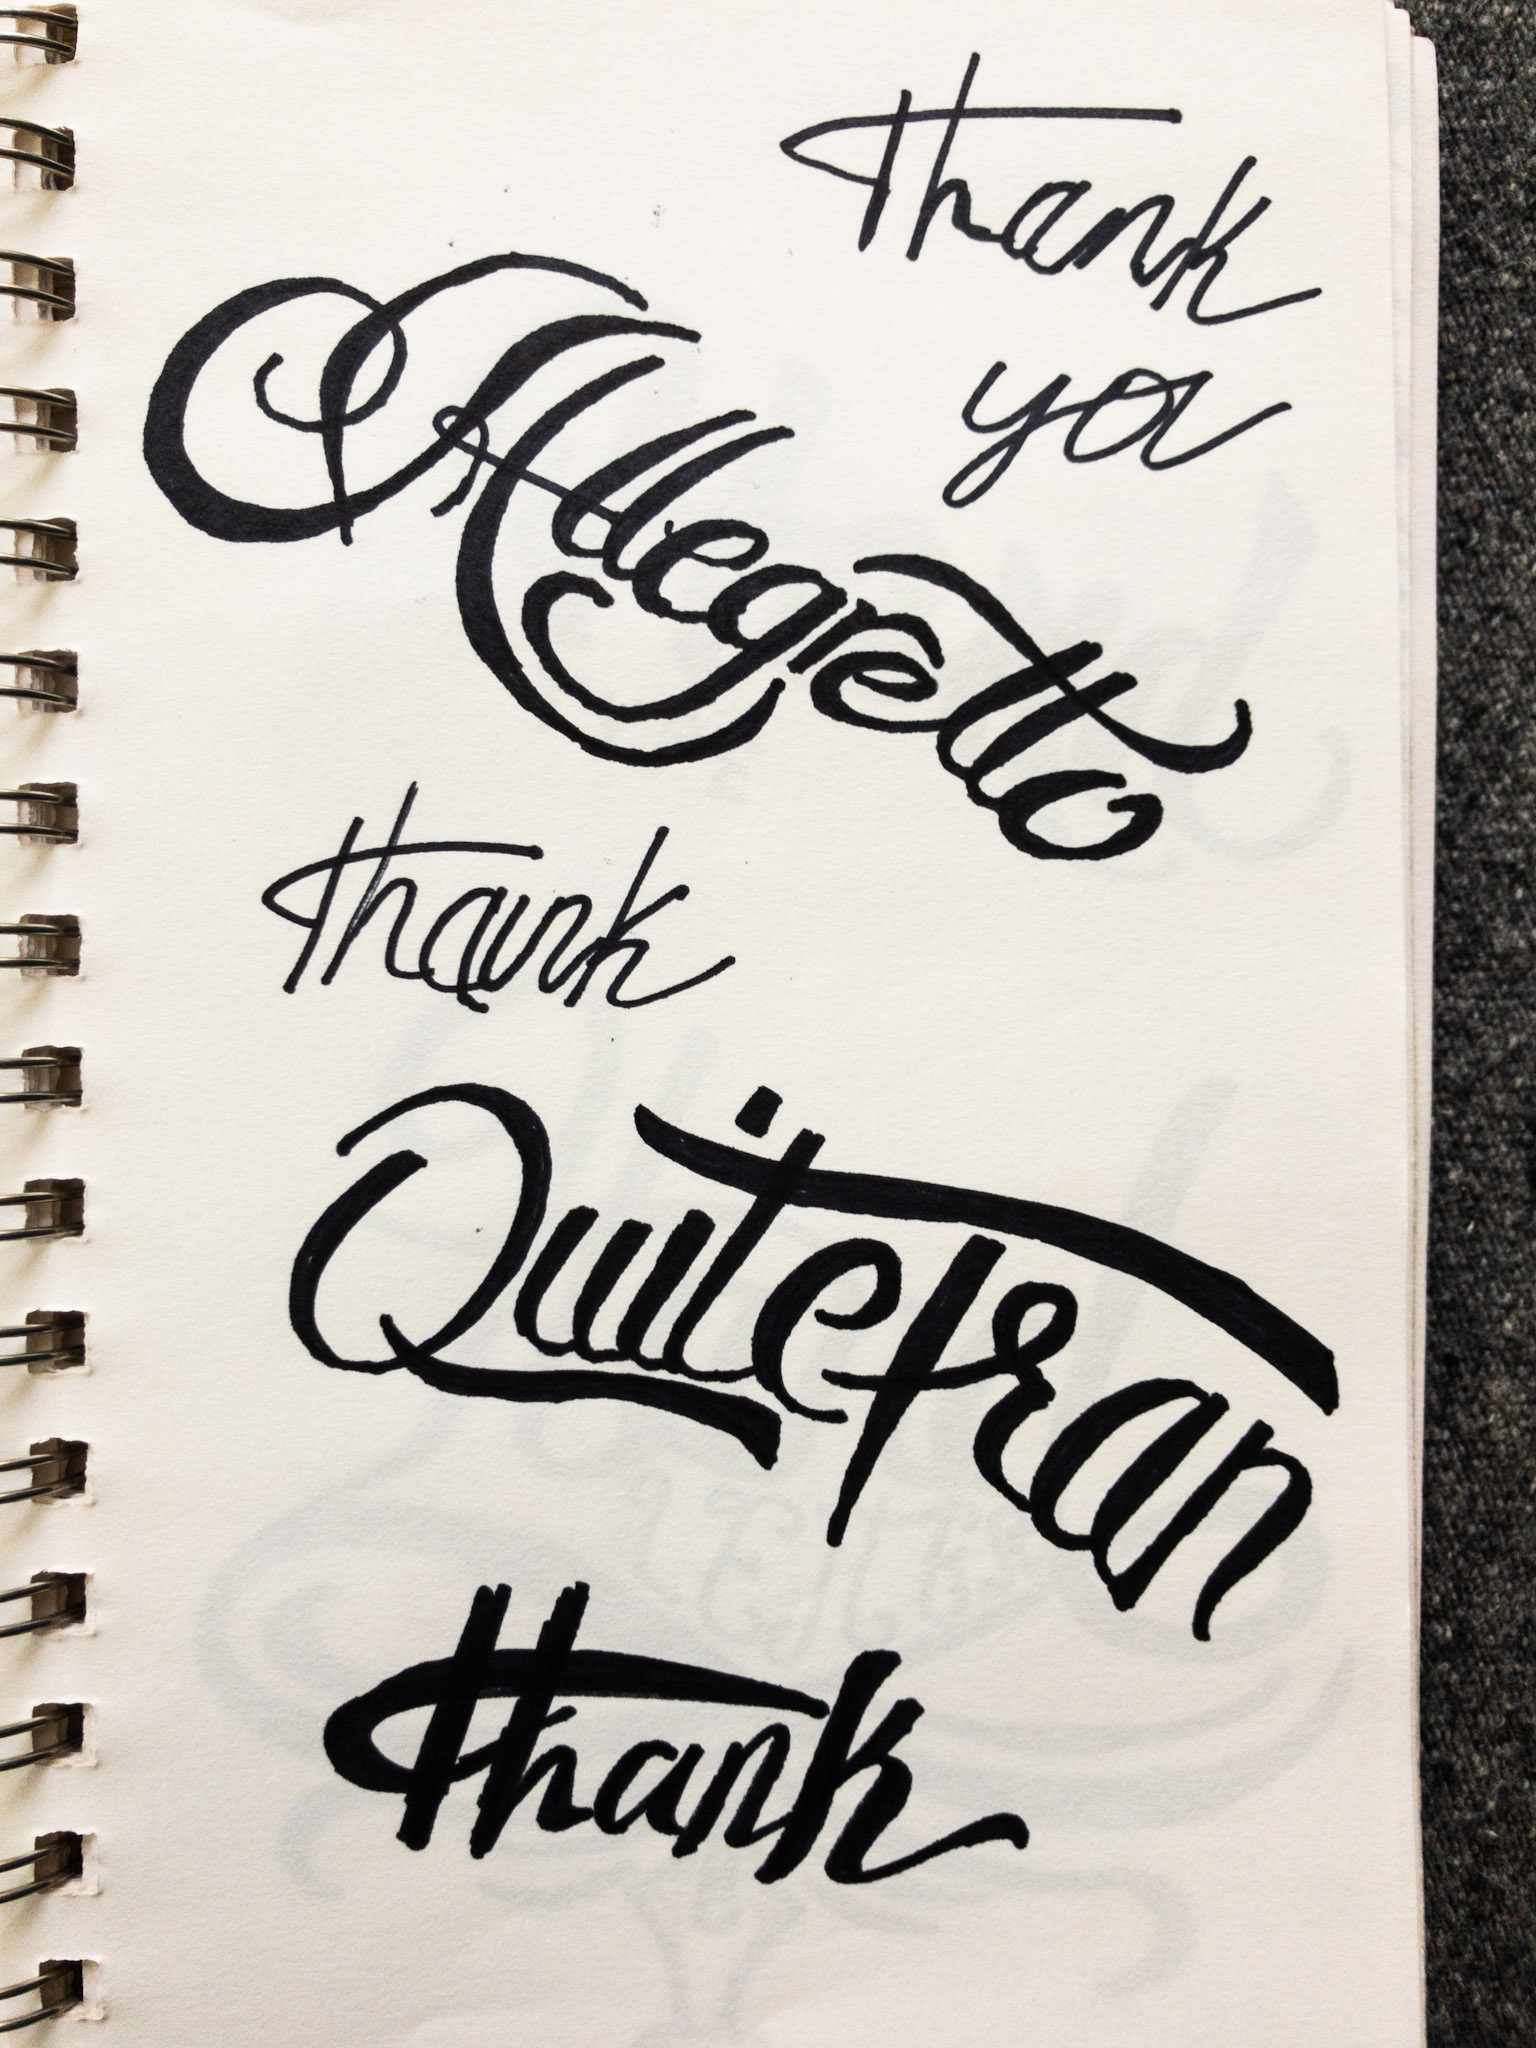 Thank
you
Allegretto
Thank
Quitefran
Thank